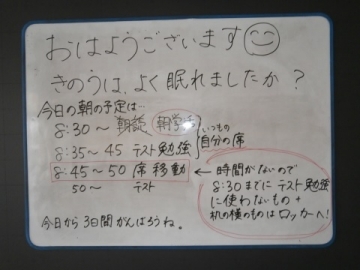 おはようございます
きのうは、よく眠れましたか？
今日の朝の予定は…
8:30～ 朝読、朝学活
8:35～45 テスト勉強
いつもの
自分の席
8:45～50 席移動
50～ テスト
← 時間がないので
8:30までにテスト勉強
に使わないもの＋
机の横のものはロッカーへ！
今日から3日間がんばろうね。